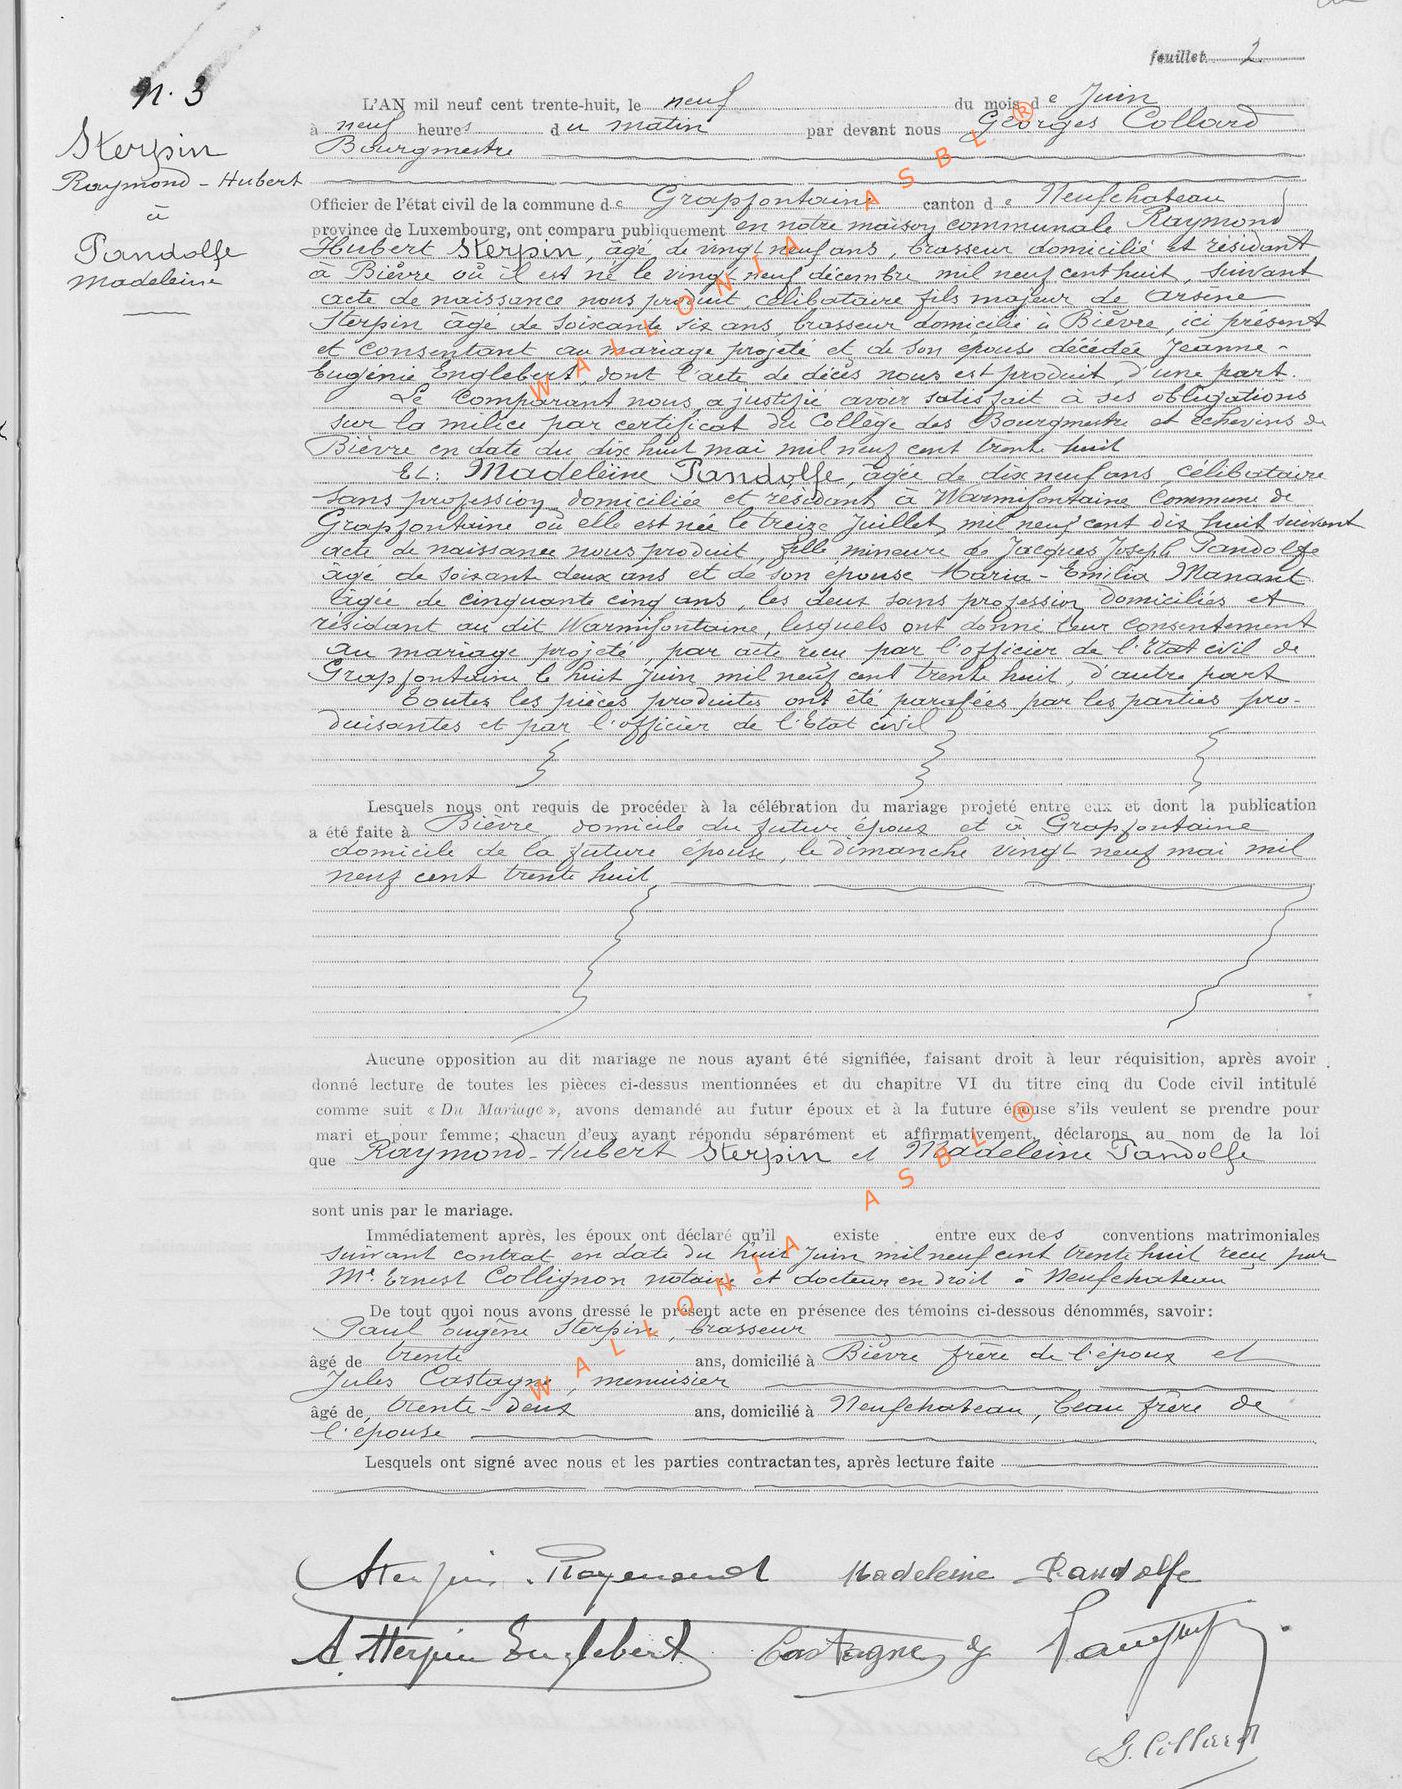 feuillet 2.
N. 3
Sterpin
Raymond-Hubert
à
Pandolfe
Madeleine
L'AN mil neuf cent trente-huit, le neuf du mois de Juin
à neuf heures du matin par devant nous Georges Collard
Bourgmestre
Officier de l'état civil de la commune de Grapfontaine canton de Neufchateau
province de Luxembourg, ont comparu publiquement en notre maison communale Raymond
Hubert Sterpin, âgé de vingt neuf ans, brasseur domicilié et résidant
à Bièvre où il est né le vingt neuf décembre mil neuf cent huit, suivant
acte de naissance nous produit, célibataire fils majeur de Arsène
Sterpin âgé de soixante six ans, brasseur domicilié à Bièvre, ici présent
et consentant au mariage projeté et de son épouse décédée Jeanne-
Eugénie Englebert, dont l'acte de décès nous est produit, d'une part.
Le comparant nous a justifié avoir satisfait à ses obligations
sur la milice par certificat du Collège des Bourgmestre et échevins de
Bièvre en date du dix huit mai mil neuf cent trente huit
Et: Madeleine Pandolfe, âgée de dix neuf ans, célibataire
sans profession domiciliée et résidant à Warmifontaine Commune de
Grapfontaine où elle est née le treize Juillet mil neuf cent dix huit suivant
acte de naissance nous produit, fille mineure de Jacques Joseph Pandolfe
âgé de soixant deux ans et de son épouse Maria-Emilia Manant
âgée de cinquante cinq ans, les deux sans profession domiciliés et
résidant au dit Warmifontaine, lesquels ont donné leur consentement
au mariage projeté, par acte reçu par l'officier de l'Etat civil de
Grapfontaine le huit juin mil neuf cent trente huit, d'autre part
Toutes les pièces produites ont été parafées par les parties pro-
duisantes et par l'officier de l'Etat civil
Lesquels nous ont requis de procéder à la célébration du mariage projeté entre eux et dont la publication
a été faite à Bièvre, domicile du futur époux et à Grapfontaine
domicile de la future épouse, le dimanche vingt neuf mai mil
neuf cent trente huit
Aucune opposition au dit mariage ne nous ayant été signifiée, faisant droit à leur réquisition, après avoir
donné lecture de toutes les pièces ci-dessus mentionnées et du chapitre VI du titre cinq du Code civil intitulé
comme suit « Du Mariage », avons demandé au futur époux et à la future épouse s'ils veulent se prendre pour
mari et pour femme; chacun d'eux ayant répondu séparément et affirmativement, déclarons au nom de la loi
que Raymond-Hubert Sterpin et Madeleine Pandolfe
sont unis par le mariage.
Immédiatement après, les époux ont déclaré qu'il existe entre eux des conventions matrimoniales
suivant contrat en date du huit Juin mil neuf cent trente huit reçu par
Me. Ernest Collignon notaire et docteur en droit à Neufchateau
De tout quoi nous avons dressé le présent acte en présence des témoins ci-dessous dénommés, savoir:
Paul Eugène Sterpin, brasseur
âgé de trente ans, domicilié à Bièvre frère de l'époux et
Jules Castagne, menuisier
âgé de trente-deux ans, domicilié à Neufchateau, beau frère de
l'épouse
Lesquels ont signé avec nous et les parties contractantes, après lecture faite
Sterpin Raymond Madeleine Pandolfe
A. Sterpin Englebert Castagne J
G. Collard
WALLONIA ASBL ®
WALLONIA ASBL ®